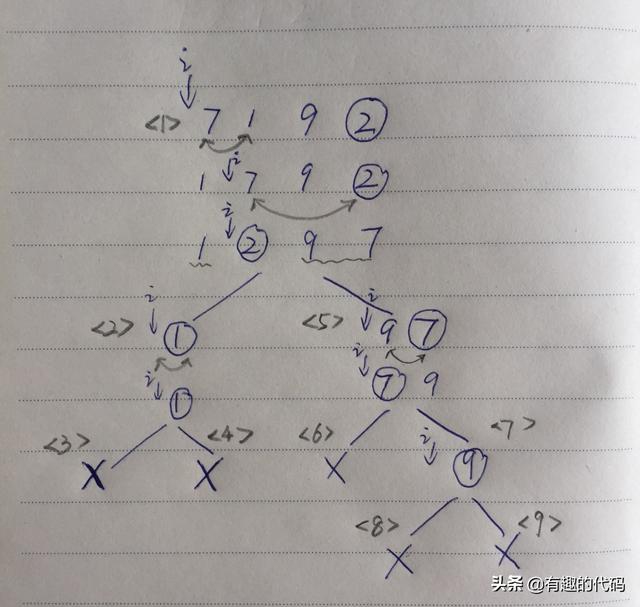 i
<1> 7 1 9 2
i
1 7 9 2
i
1 2 9 7
i i
<2> 1 <5> 9 7
i i
1 7 9
<3> <4> <6> i <7>
X X X 9
<8> <9>
X X
头条 @有趣的代码